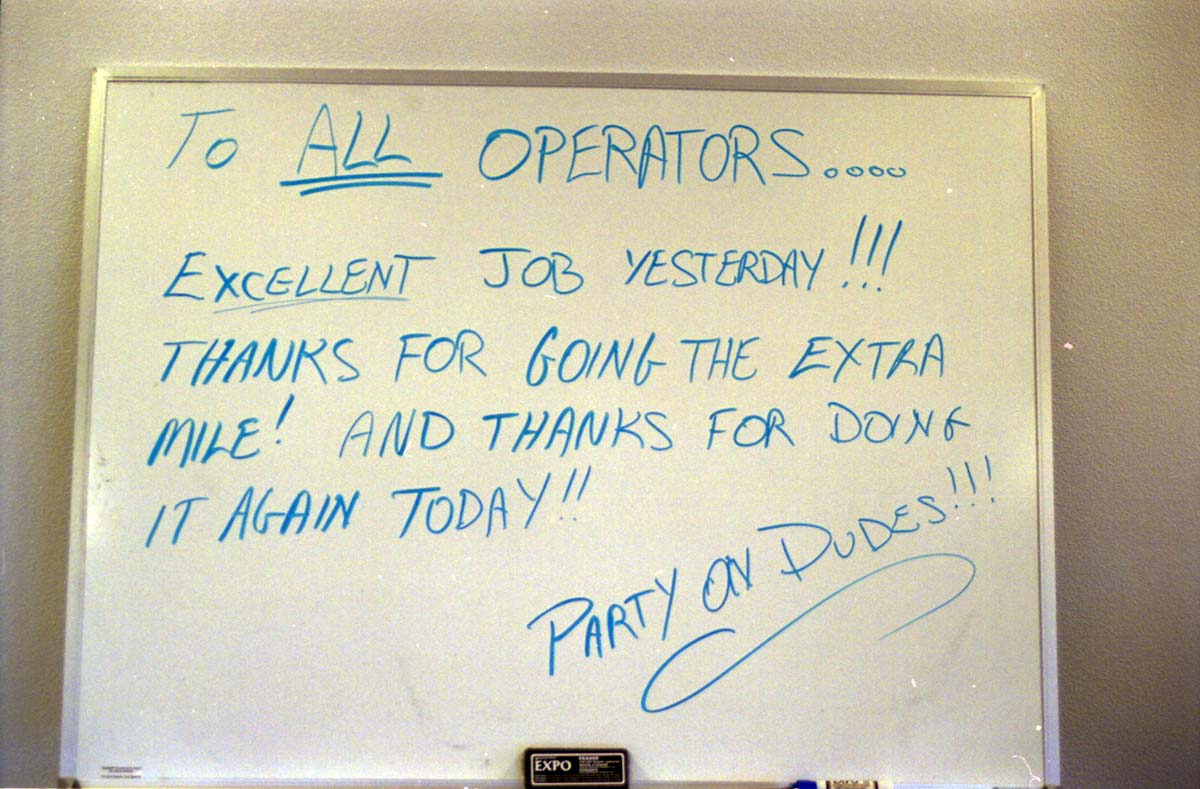 To ALL OPERATORS....
EXCELLENT JOB YESTERDAY!!!
THANKS FOR GOING THE EXTRA
MILE! AND THANKS FOR DOING
IT AGAIN TODAY!!
PARTY ON DUDES!!!
EXPO
ERASER
EXPO